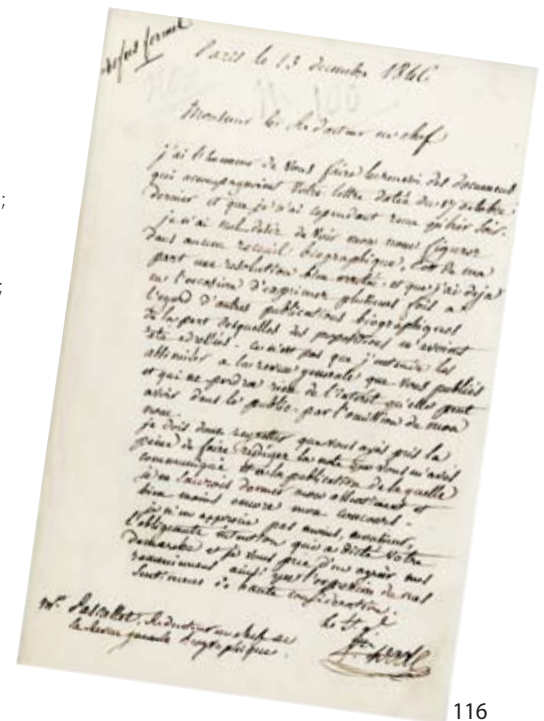 ;
;
refus formel
Paris le 13 decembre 1846
Monsieur le Redacteur en chef
j'ai l'honneur de vous faire le renvoi des documens
qui accompagnaient votre lettre datée du 17 octobre
dernier et que je n'ai cependant reçu qu'hier soir.
je n'ai nul desir de voir mon nom figurer
dans aucun recueil biographique, c'est de ma
part une resolution bien arretée, et que j'ai deja
eu l'occasion d'exprimer plusieurs fois a
l'egard d'autres publications biographiques
de la part desquelles des propositions m'avoient
eté adressées. ce n'est pas que j'entende les
assimiler a la revue generale que vous publiés
et qui ne perdra rien de l'interet qu'elle peut
avoir dans le public, par l'omission de mon
nom.
je dois donc regretter que vous ayés pris la
peine de faire rediger la note que vous m'avés
communiquée et a la publication de laquelle
je ne saurois donner mon assentiment et
bien moins encore mon concours.
je n'en apprecie pas moins, monsieur,
l'obligeante intention qui a dicté votre
demarche et je vous prie d'en agreer mes
remerciemens ainsi que l'expression de mes
sentimens de haute consideration.
Mr. Pascallet, Redacteur en chef de
la Revue generale biographique.
116